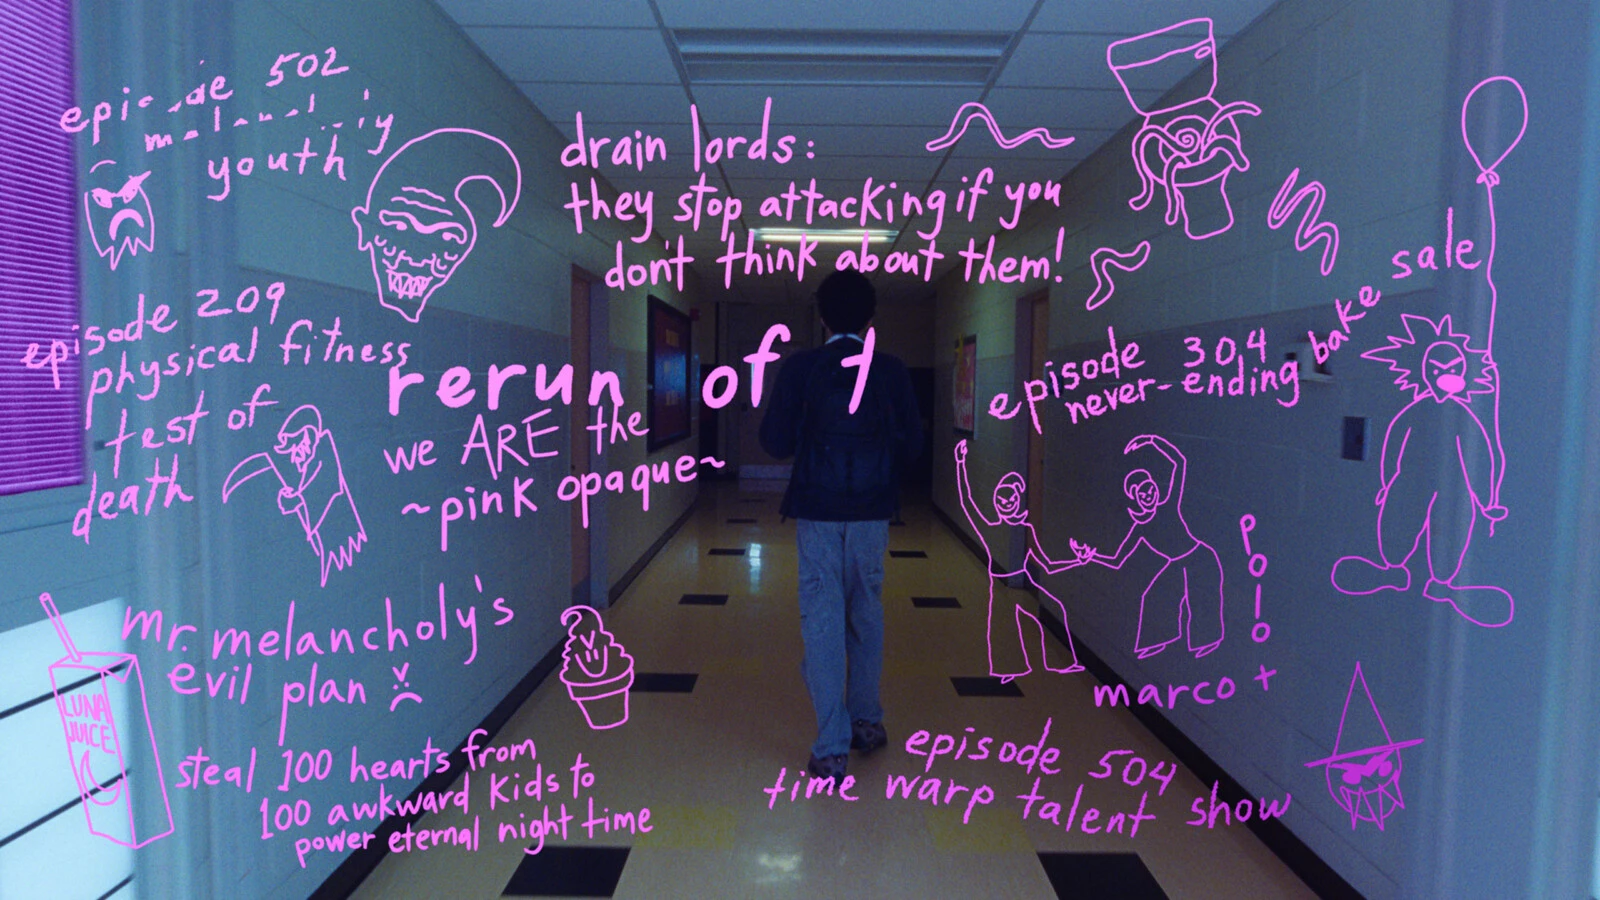 episode 502
youth
drain lords:
they stop attacking if you
don't think about them!
episode 209
physical fitness
test of
death
rerun of
we ARE the
~pink opaque~
bake sale
episode 304
never-ending
mr. melancholy's
evil plan
steal 100 hearts from
100 awkward kids to
power eternal night time
LUNA
JUICE
marco +
polo
episode 504
time warp talent show